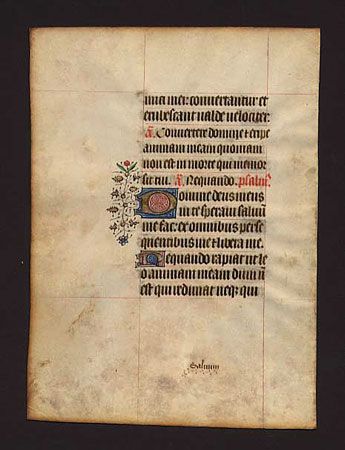 imici mei: convertantur et
erubescant valde velociter.
A. Convertere domine et eripe
animam meam quoniam
non est in morte qui memor
sit tui. A. Nequando. psalm͛.
Domine deus meus
in te speravi salvū
me fac: ex omnibus perse
quentibus me et libera me.
Nequando rapiat ut leo
animam meam dum nō
est qui redimat neqz qui
Saluum